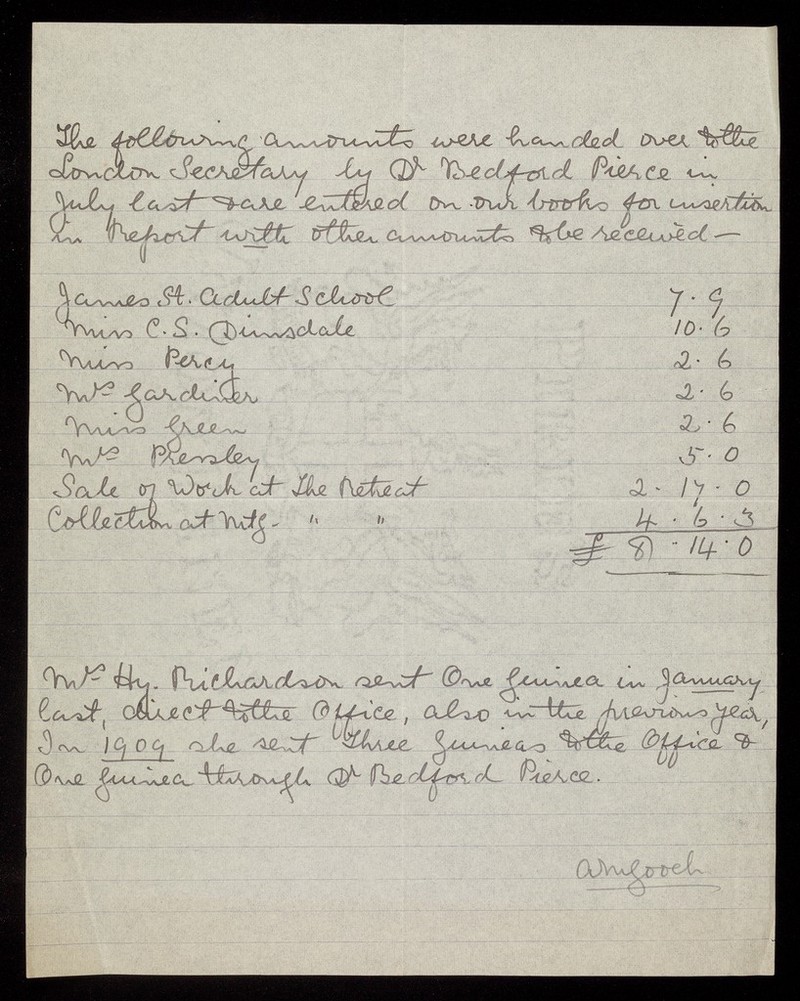 The following amounts were handed over to the
London Secretary by Dr Bedford Pierce in
July last & are entered on our books for insertion
in Report with other amounts to be received —
James St. Adult School 7 . 9
Miss C. S. Dimsdale 10 . 6
Miss Percy 2 . 6
Mrs Gardiner 2 . 6
Miss Green 2 . 6
Mrs Pressley 5 . 0
Sale of Work at The Retreat 2 . 17 . 0
Collection at Mtg - " " 4 . 6 . 3
£ 8 . 14 . 0
Mrs Hy. Richardson sent One Guinea in January
last, direct to the Office, also in the previous year,
In 1909 she sent Three Guineas to the Office &
One Guinea through Dr Bedford Pierce.
AMGooch